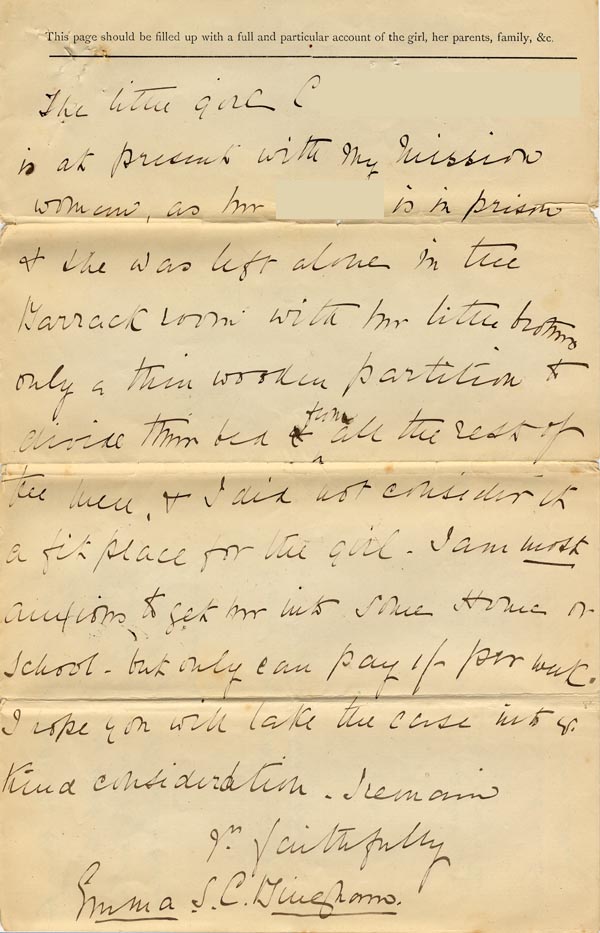 This page should be filled up with a full and particular account of the girl, her parents, family, &c.
The little girl C
is at present with my Mission
woman, as her is in prison
& she was left alone in the
Barrack room with her little brother
only a thin wooden partition to
divide their bed from all the rest of
the men, & I did not consider it
a fit place for the girl - I am most
anxious to get her into some Home or
School - but only can pay 5/- per week.
I hope you will take the case into yr.
kind consideration - I remain
Yrs faithfully
Emma S. C. Bingham.